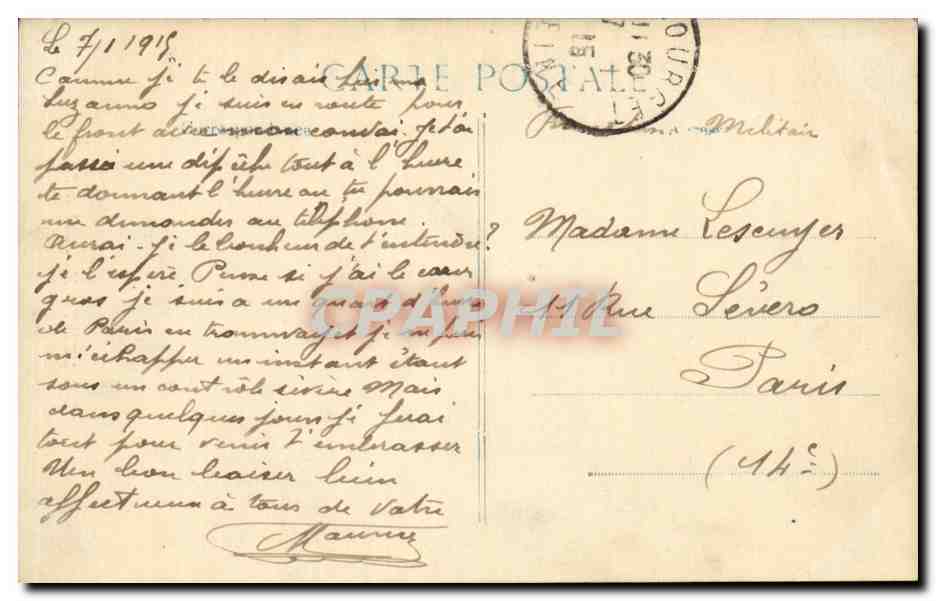 Le 7/1 1915
CARTE POSTALE
Comme je te le disais hier ma
Suzanne je suis en route pour
le front avec mon convoi. Je t'ai
passé une dépêche tout à l'heure
te donnant l'heure ou tu pourrais
me demander au téléphone.
Aurai-je le bonheur de t'entendre?
je l'espère Pense si j'ai le cœur
gros je suis a un quart d'heure
de Paris en tramway et je ne puis
m'échapper un instant étant
sous un contrôle sévère Mais
dans quelques jours je ferai
tout pour venir t'embrasser
Un bon baiser bien
affectueux à tous de votre
Maurice
BOURGET
11 30
7
15
Militair
Madame Lescuyer
11 Rue Sévero
Paris
(14e)
CPAPHIL